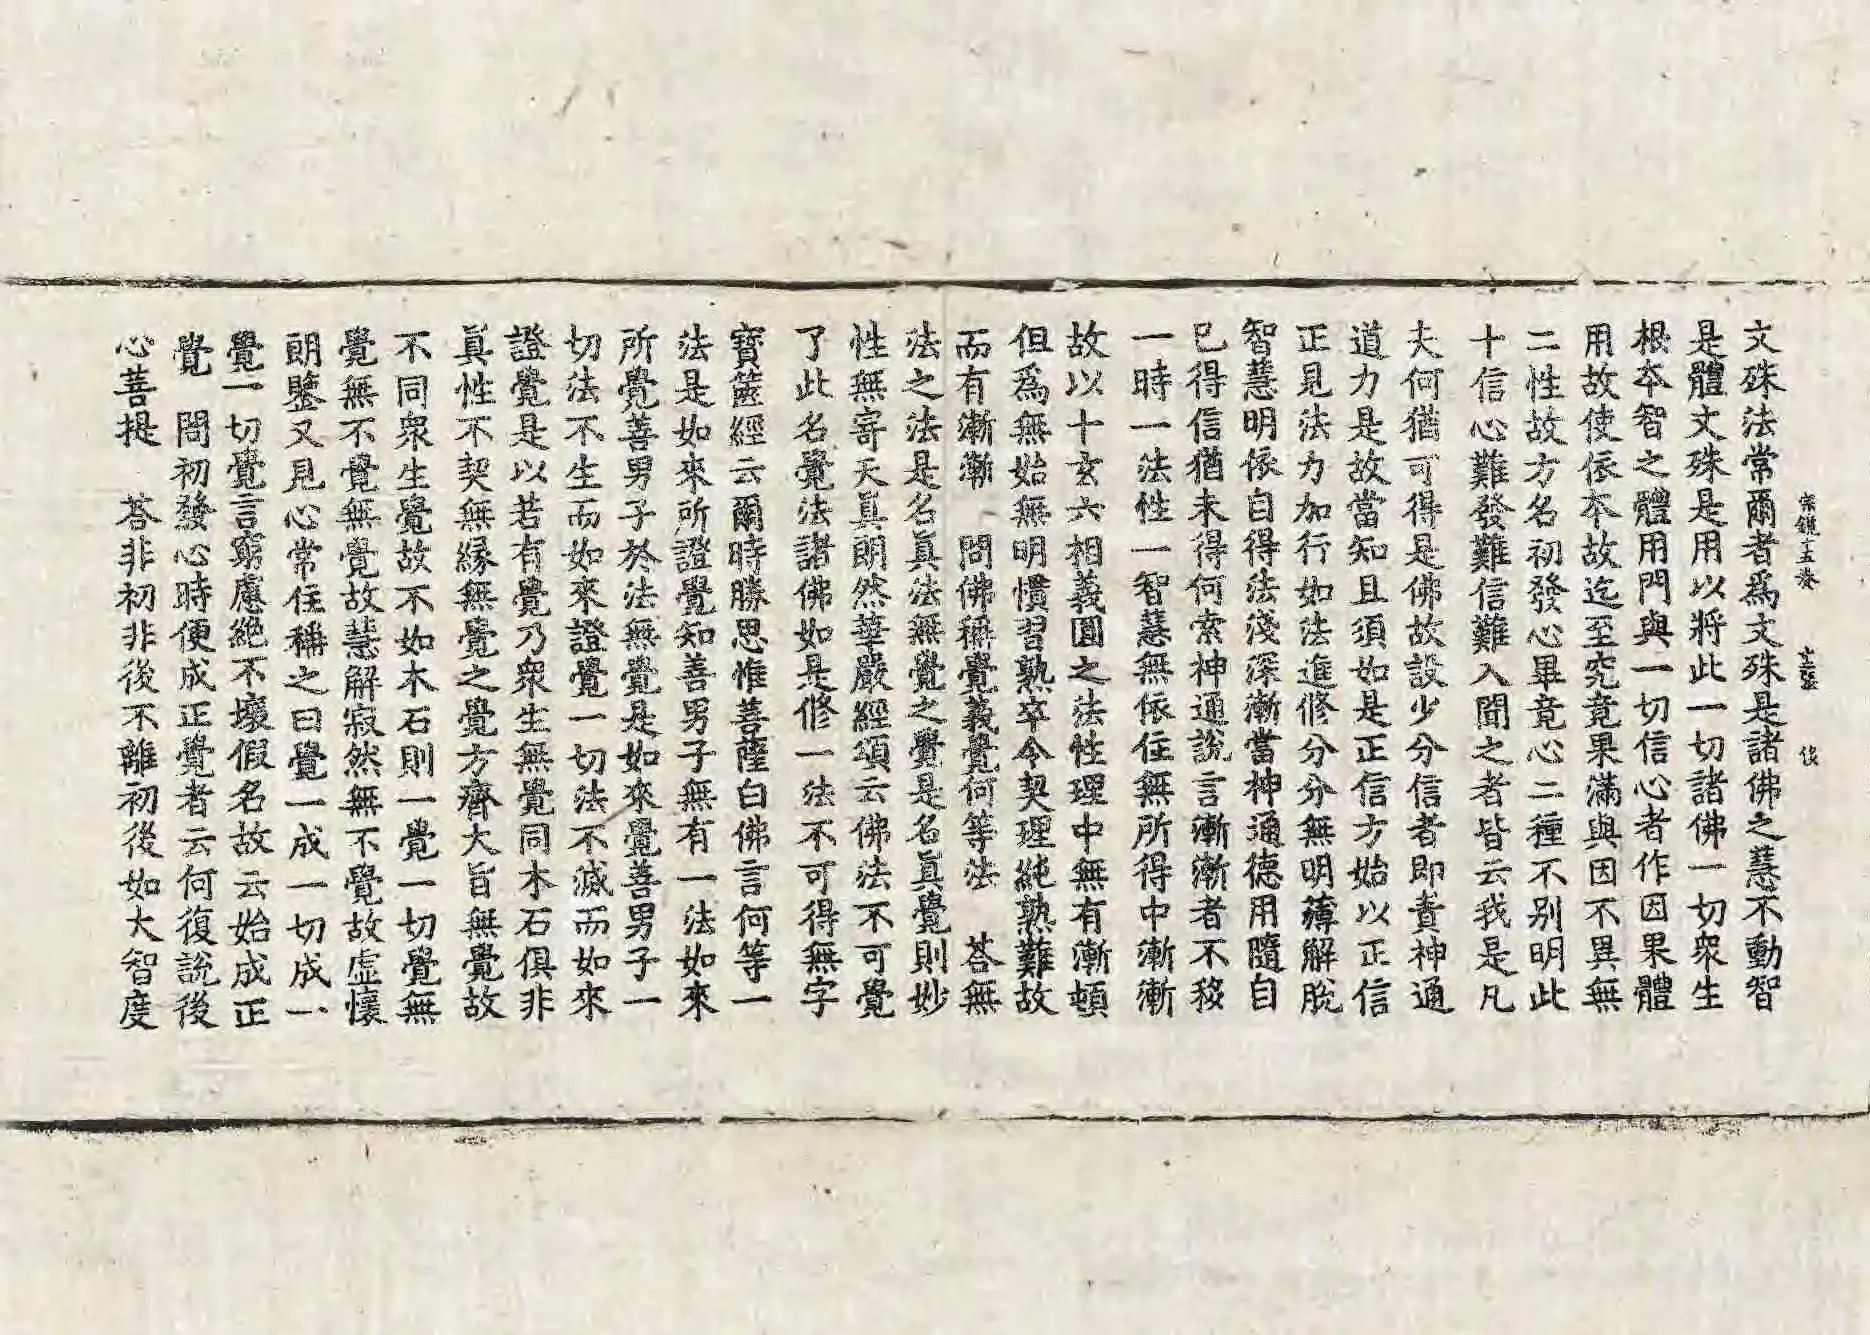 文殊法常爾者為文殊是諸佛之慧不動智
是體文殊是用以將此一切諸佛一切衆生
根本智之體用門與一切信心者作因果體
用故使依本故迄至究竟果滿與因不異無
二性故方名初發心畢竟心二種不别明此
十信心難發難信難入聞之者皆云我是凡
夫何猶可得是佛故設少分信者即責神通
道力是故當知且須如是正信方始以正信
正見法力加行如法進修分分無明薄解脫
智慧明依自得法淺深漸當神通德用隨自
已得信猶未得何索神通說言漸漸者不移
一時一法性一智慧無依住無所得中漸漸
故以十玄六相義圓之法性理中無有漸頓
但為無始無明慣習熟卒令契理純熟難故
而有漸漸 問佛稱覺義覺何等法 荅無
法之法是名真法無覺之覺是名真覺則妙
性無寄天真朗然華嚴經頌云佛法不可覺
了此名覺法諸佛如是修一法不可得無字
寶篋經云爾時勝思惟菩薩白佛言何等一
法是如來所證覺知善男子無有一法如來
所覺善男子於法無覺是如來覺善男子一
切法不生而如來證覺一切法不滅而如來
證覺是以若有覺乃衆生無覺同木石俱非
真性不契無緣無覺之覺方齊大旨無覺故
不同衆生覺故不如木石則一覺一切覺無
覺無不覺無覺故慧解寂然無不覺故虛懷
朗鑒又見心常住稱之曰覺一成一切成一
覺一切覺言窮慮絕不壞假名故云始成正
覺 問初發心時便成正覺者云何復說後
心菩提 荅非初非後不離初後如大智度